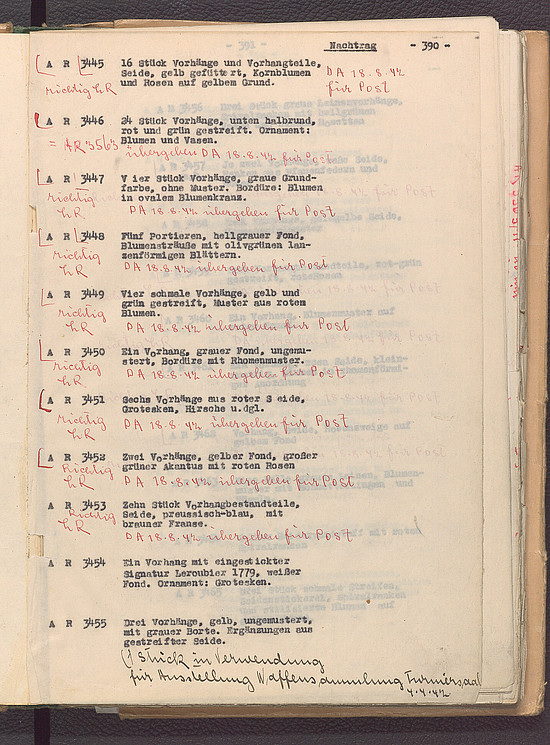 Nachtrag - 390 -
A R 3445 16 Stück Vorhänge und Vorhangteile,
Seide, gelb gefüttert, Kornblumen
und Rosen auf gelbem Grund.
DA 18.8.42
für Post
richtig LR
A R 3446 24 Stück Vorhänge, unten halbrund,
rot und grün gestreift. Ornament:
Blumen und Vasen.
= AR 3563 übergeben DA 18.8.42 für Post
A R 3447 V ier Stück Vorhänge, graue Grund-
farbe, ohne Muster. Bordüre: Blumen
in ovalem Blumenkranz.
richtig LR
DA 18.8.42 übergeben für Post
A R 3448 Fünf Portieren, hellgrauer Fond,
Blumensträuße mit olivgrünen lan-
zenförmigen Blättern.
richtig LR
DA 18.8.42 übergeben für Post
A R 3449 Vier schmale Vorhänge, gelb und
grün gestreift, Muster aus rotem
Blumen.
richtig LR
DA 18.8.42 übergeben für Post
A R 3450 Ein Vorhang, grauer Fond, ungemu-
stert, Bordüre mit Rhomenmuster.
richtig LR
DA 18.8.42 übergeben für Post
A R 3451 Sechs Vorhänge aus roter S eide,
Grotesken, Hirsche u.dgl.
richtig LR
DA 18.8.42 übergeben für Post
A R 3452 Zwei Vorhänge, gelber Fond, großer
grüner Akantus mit roten Rosen
Richtig LR
DA 18.8.42 übergeben für Post
A R 3453 Zehn Stück Vorhangbestandteile,
Seide, preussisch-blau, mit
brauner Franse.
Richtig LR
DA 18.8.42 übergeben für Post
A R 3454 Ein Vorhang mit eingestickter
Signatur Leroubier 1779, weißer
Fond. Ornament: Grotesken.
A R 3455 Drei Vorhänge, gelb, ungemustert,
mit grauer Borte. Ergänzungen aus
gestreifter Seide.
(1 Stück in Verwendung
für Ausstellung Waffensammlung Turniersaal
4.4.42